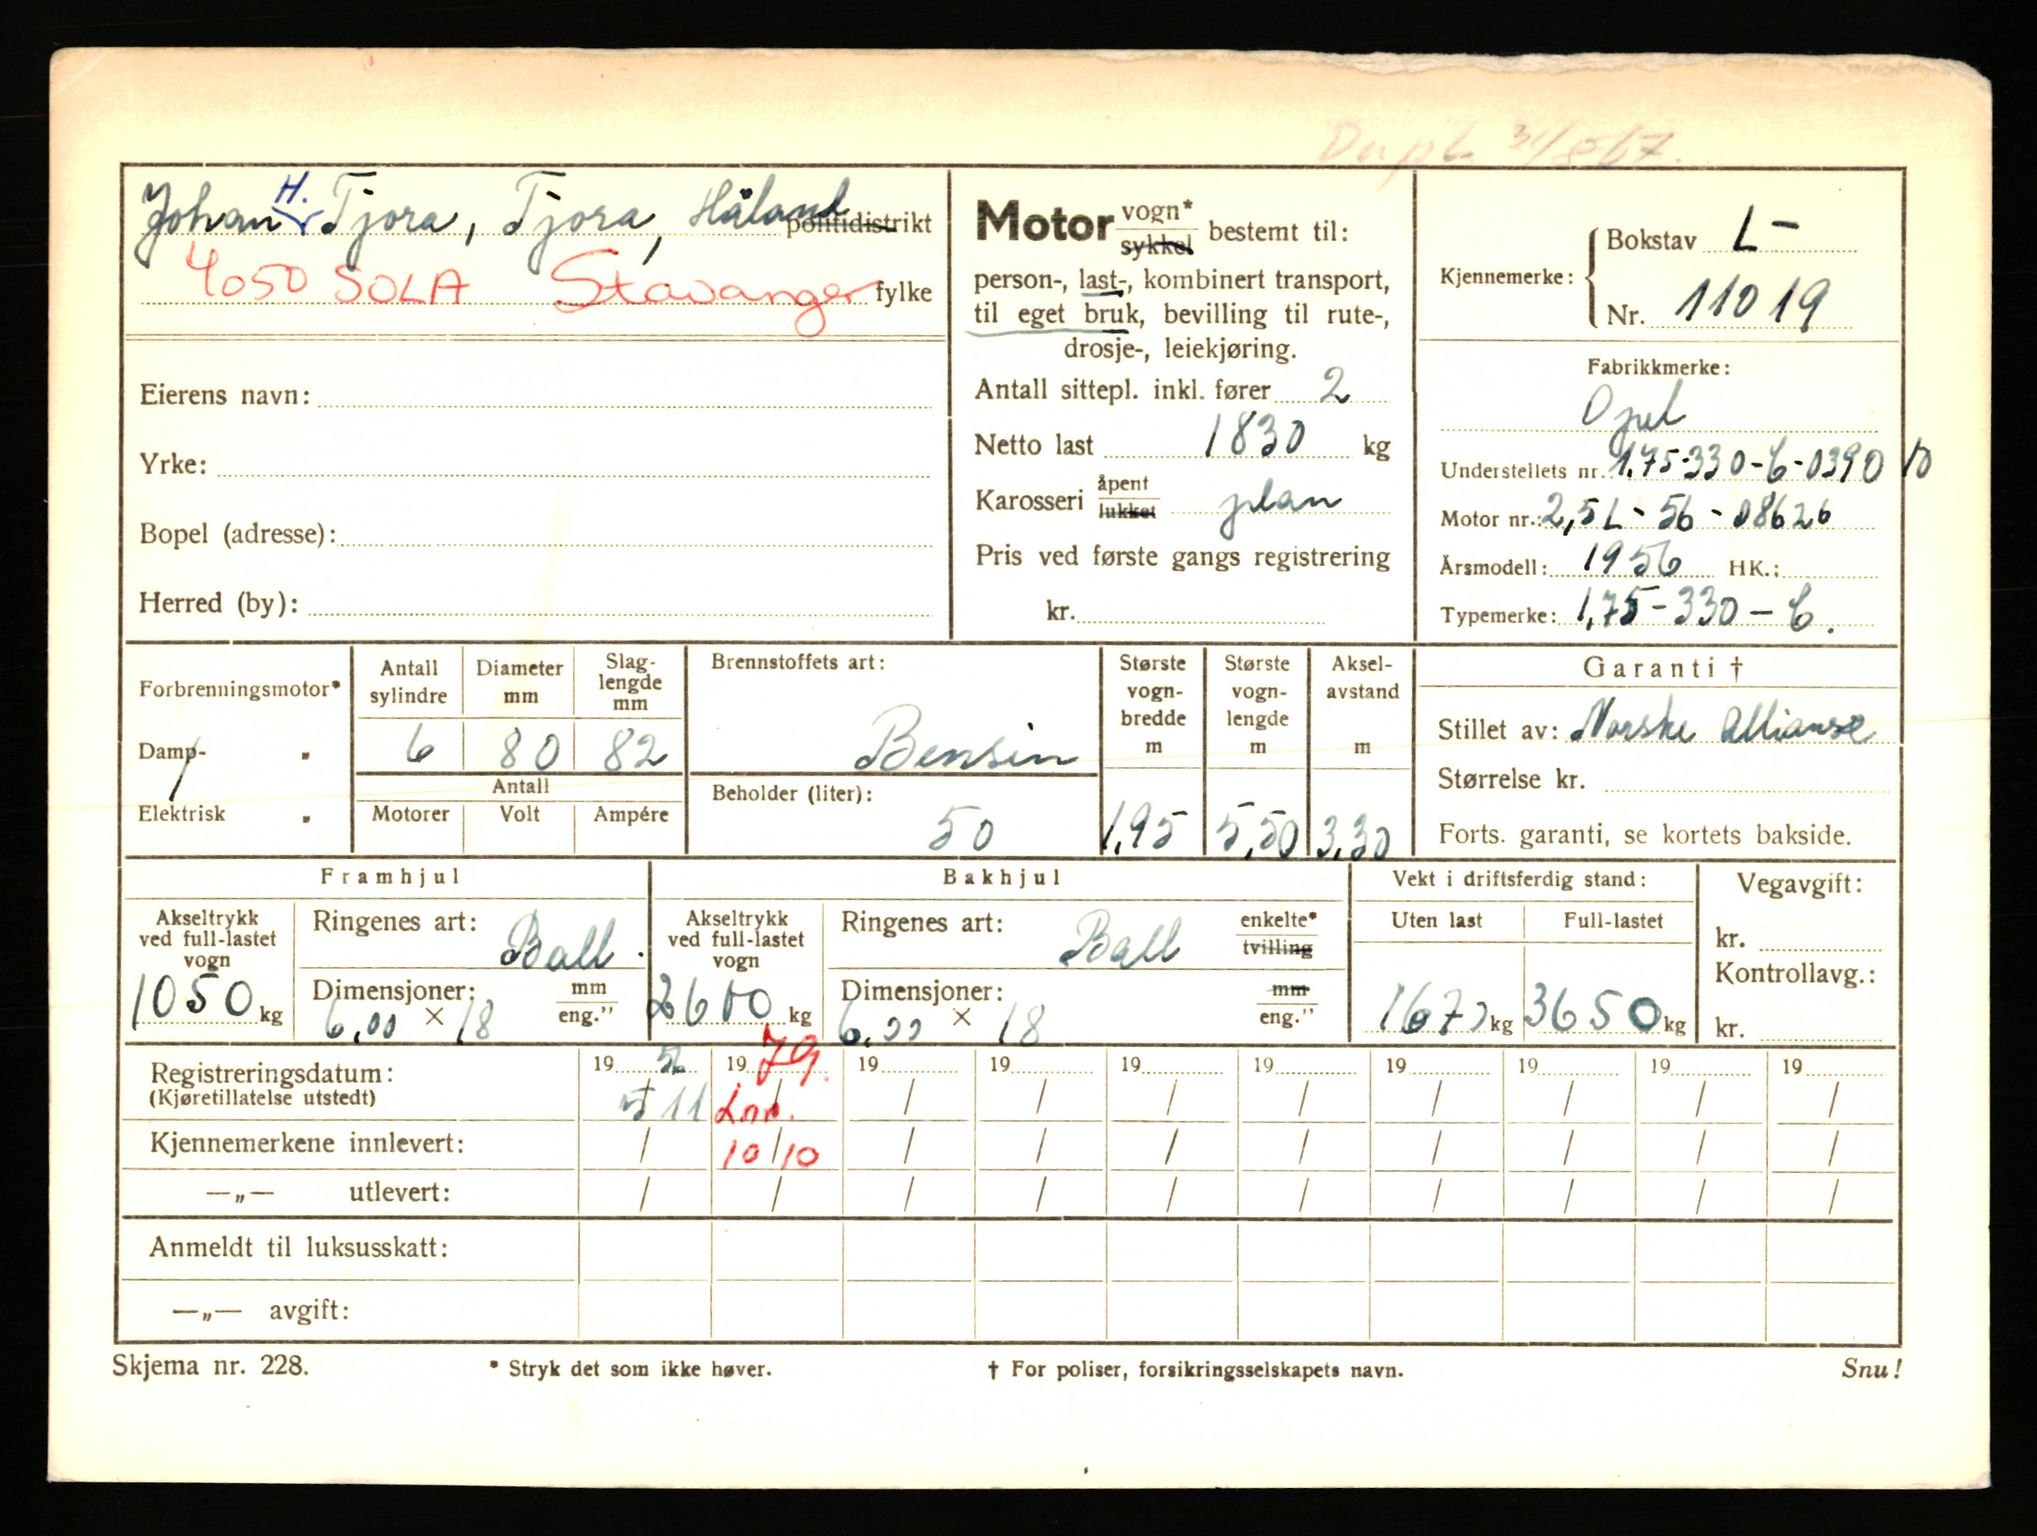 Dupl. 31/8 67.
Johan H. Tjora, Tjora, Håland politidistrikt
4050 SOLA Stavanger fylke
Eierens navn:
Yrke:
Bopel (adresse):
Herred (by):
Motor vogn* sykkel bestemt til:
person-, last-, kombinert transport,
til eget bruk, bevilling til rute-,
drosje-, leiekjøring.
Antall sittepl. inkl. fører 2
Netto last 1830 kg
Karosseri åpent lukket plan
Pris ved første gangs registrering
kr.
Kjennemerke: Bokstav L-
Nr. 11019
Fabrikkmerke:
Opel
Understellets nr.: 1,75-330-6-0390 10
Motor nr.: 2,5L-56-08626
Årsmodell: 1956 HK.:
Typemerke: 1,75-330-6.
Forbrenningsmotor*
Damp- "
Elektrisk "
Antall sylindre
6
Diameter mm
80
Slaglengde mm
82
Antall
Motorer Volt Ampére
Brennstoffets art:
Bensin
Beholder (liter):
50
Største vogn-bredde m
1,95
Største vogn-lengde m
5,50
Aksel-avstand m
3,30
Garanti †
Stillet av: Norske Allianse
Størrelse kr.
Forts. garanti, se kortets bakside.
Framhjul
Akseltrykk
ved full-lastet
vogn
1050 kg
Ringenes art: Ball.
Dimensjoner: mm eng."
6,00 × 18
Bakhjul
Akseltrykk
ved full-lastet
vogn
2600 kg
Ringenes art: Ball enkelte* tvilling
Dimensjoner: mm eng."
6,00 × 18
Vekt i driftsferdig stand:
Uten last Full-lastet
1670 kg 3650 kg
Vegavgift:
kr.
Kontrollavg.:
kr.
19 19 79. 19 19 19 19 19 19 19 19
Registreringsdatum:
(Kjøretillatelse utstedt) 5/11 Lnr. / / / / / / / / /
Kjennemerkene innlevert: / 10/10 / / / / / / / /
—„— utlevert: / / / / / / / / / /
Anmeldt til luksusskatt:
—„— avgift:
Skjema nr. 228. * Stryk det som ikke høver. † For poliser, forsikringsselskapets navn. Snu!